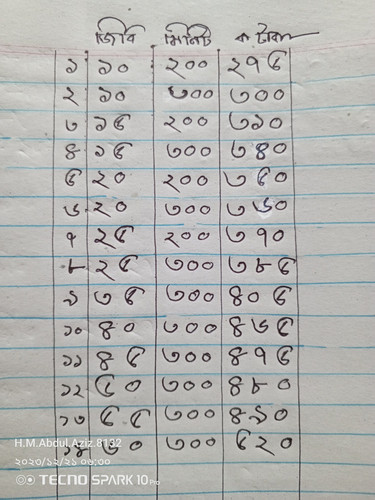 জিবি মিনিট টাকা
১ ১০ ২০০ ২৭৫
২ ১০ ৩০০ ৩০০
৩ ১৫ ২০০ ৩১০
৪ ১৫ ৩০০ ৩৪০
৫ ২০ ২০০ ৩৫০
৬ ২০ ৩০০ ৩৬০
৭ ২৫ ২০০ ৩৭০
৮ ২৫ ৩০০ ৩৮৫
৯ ৩৫ ৩০০ ৪০৫
১০ ৪০ ৩০০ ৪৬৫
১১ ৪৫ ৩০০ ৪৭৫
১২ ৫০ ৩০০ ৪৮০
১৩ ৫৫ ৩০০ ৪৯০
১৪ ৬০ ৩০০ ৫২০
H.M.Abdul.Aziz.8132
২০২৩/১২/২১ ০৬:৩০
TECNO SPARK 10 Pro